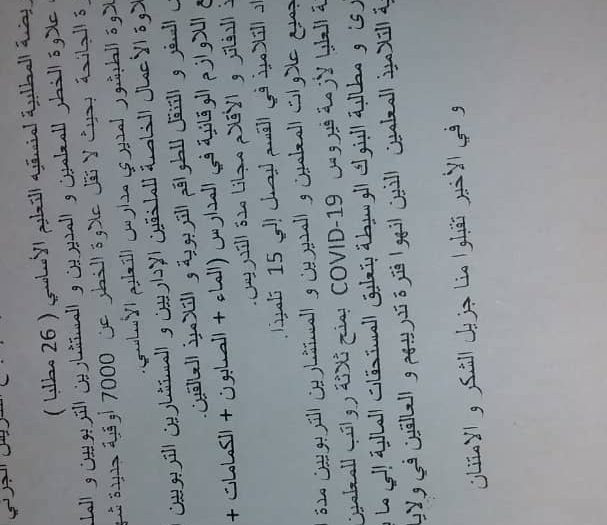 التدريس الجزئي
المطلبية لمنسقيه التعليم الأساسي ( 26 مطلبا )
علاوة الخطر للمعلمين و المديرين و المستشارين التربويين و
الجائحة بحيث لا تقل علاوة الخطر عن 7000 أوقية جديدة
الطبشور لمديري مدارس التعليم الأساسي.
الأعمال الخاصة للملحقين الإداريين و المستشارين التربويين
السفر و التنقل للطواقم التربوية و التلاميذ العالقين.
اللاوازم الوقائية في المدارس (الماء + الصابون + الكمامات +
الدفاتر و الأقلام مجانا مدة التدريس.
التلاميذ في القسم ليصل إلي 15 تلميذا.
جميع علاوات المعلمين و المديرين و المستشارين التربويين مدة
العليا لأزمة فيروس COVID-19 بمنح ثلاثة رواتب للمعلمين
و مطالبة البنوك الوسيطة بتعليق المستحقات المالية إلي ما
التلاميذ المعلمين الذين انهوا فترة تدريبهم و العالقين في
و في الأخير تقبلوا منا جزيل الشكر و الامتنان